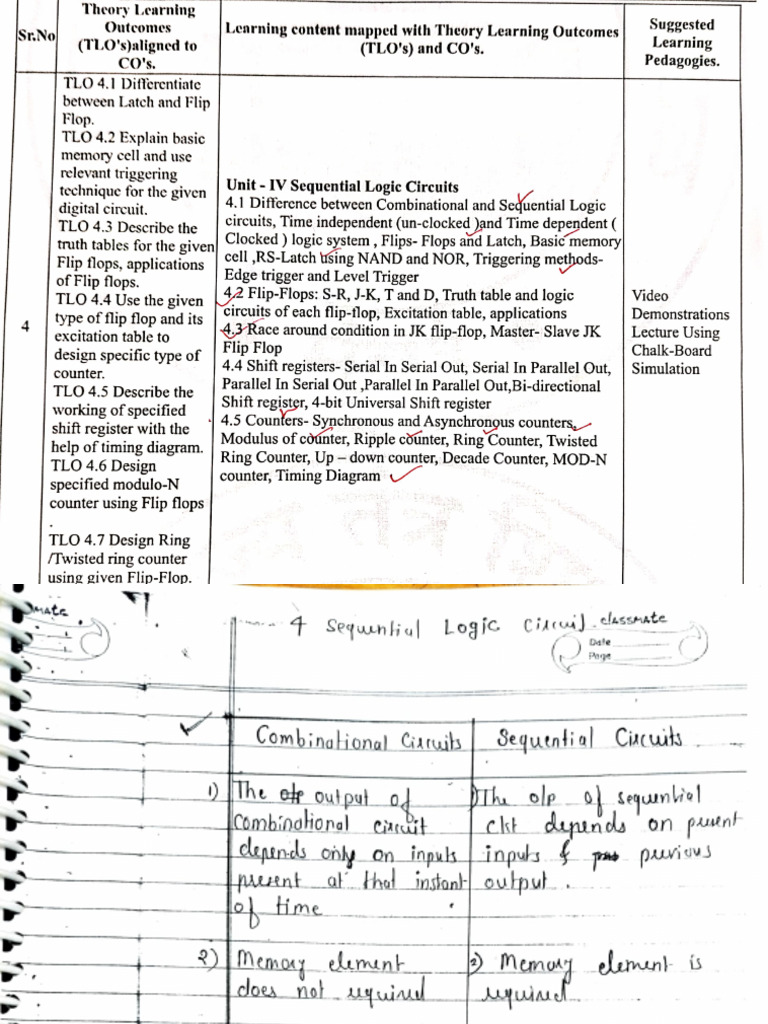 Sr.No
Theory Learning
Outcomes
(TLO's)aligned to
CO's.
Learning content mapped with Theory Learning Outcomes
(TLO's) and CO's.
Suggested
Learning
Pedagogies.
4
TLO 4.1 Differentiate
between Latch and Flip
Flop.
TLO 4.2 Explain basic
memory cell and use
relevant triggering
technique for the given
digital circuit.
TLO 4.3 Describe the
truth tables for the given
Flip flops, applications
of Flip flops.
TLO 4.4 Use the given
type of flip flop and its
excitation table to
design specific type of
counter.
TLO 4.5 Describe the
working of specified
shift register with the
help of timing diagram.
TLO 4.6 Design
specified modulo-N
counter using Flip flops
.
TLO 4.7 Design Ring
/Twisted ring counter
using given Flip-Flop.
Unit - IV Sequential Logic Circuits
4.1 Difference between Combinational and Sequential Logic
circuits, Time independent (un-clocked )and Time dependent (
Clocked ) logic system , Flips- Flops and Latch, Basic memory
cell ,RS-Latch using NAND and NOR, Triggering methods-
Edge trigger and Level Trigger
4.2 Flip-Flops: S-R, J-K, T and D, Truth table and logic
circuits of each flip-flop, Excitation table, applications
4.3 Race around condition in JK flip-flop, Master- Slave JK
Flip Flop
4.4 Shift registers- Serial In Serial Out, Serial In Parallel Out,
Parallel In Serial Out ,Parallel In Parallel Out,Bi-directional
Shift register, 4-bit Universal Shift register
4.5 Counters- Synchronous and Asynchronous counters,
Modulus of counter, Ripple counter, Ring Counter, Twisted
Ring Counter, Up – down counter, Decade Counter, MOD-N
counter, Timing Diagram
Video
Demonstrations
Lecture Using
Chalk-Board
Simulation
4 Sequential Logic Circuit classmate
Date
Page
Combinational Circuits
Sequential Circuits
1) The output of
Combinational circuit
depends only on inputs
present at that instant
of time
1) The o/p of sequential
ckt depends on present
inputs & previous
output.
2) Memory element
does not required
2) Memory element is
required